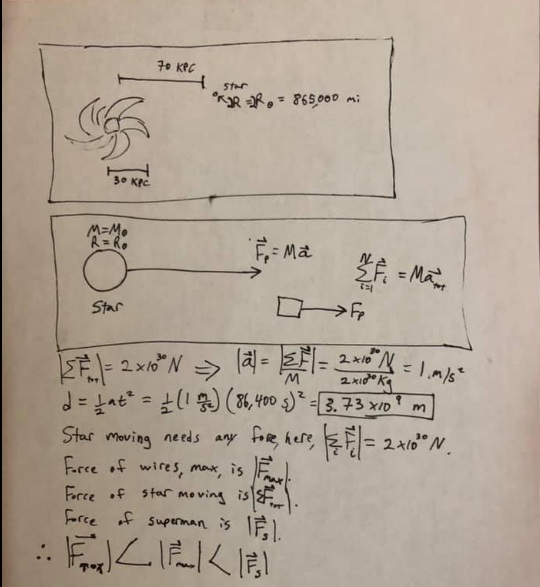 70 KPC
star
2R = 2R⊙ = 865,000 mi
30 KPC
M = M⊙
R = R⊙
F⃗p = Ma⃗
∑_{i=1}^{N} F⃗i = Ma⃗tot
Star
Fp
|∑F⃗tot| = 2×10^30 N ⇒ |a⃗| = |∑F⃗|/M = 2×10^30 N / 2×10^30 kg = 1 m/s²
d = ½at² = ½(1 m/s²)(86,400 s)² = 3.73×10^9 m
Star moving needs any force, here, |∑i F⃗i| = 2×10^30 N.
Force of wires, max, is |F⃗max|.
Force of star moving is |∑F⃗tot|.
Force of superman is |F⃗s|.
∴ < |F⃗max| < |F⃗s|